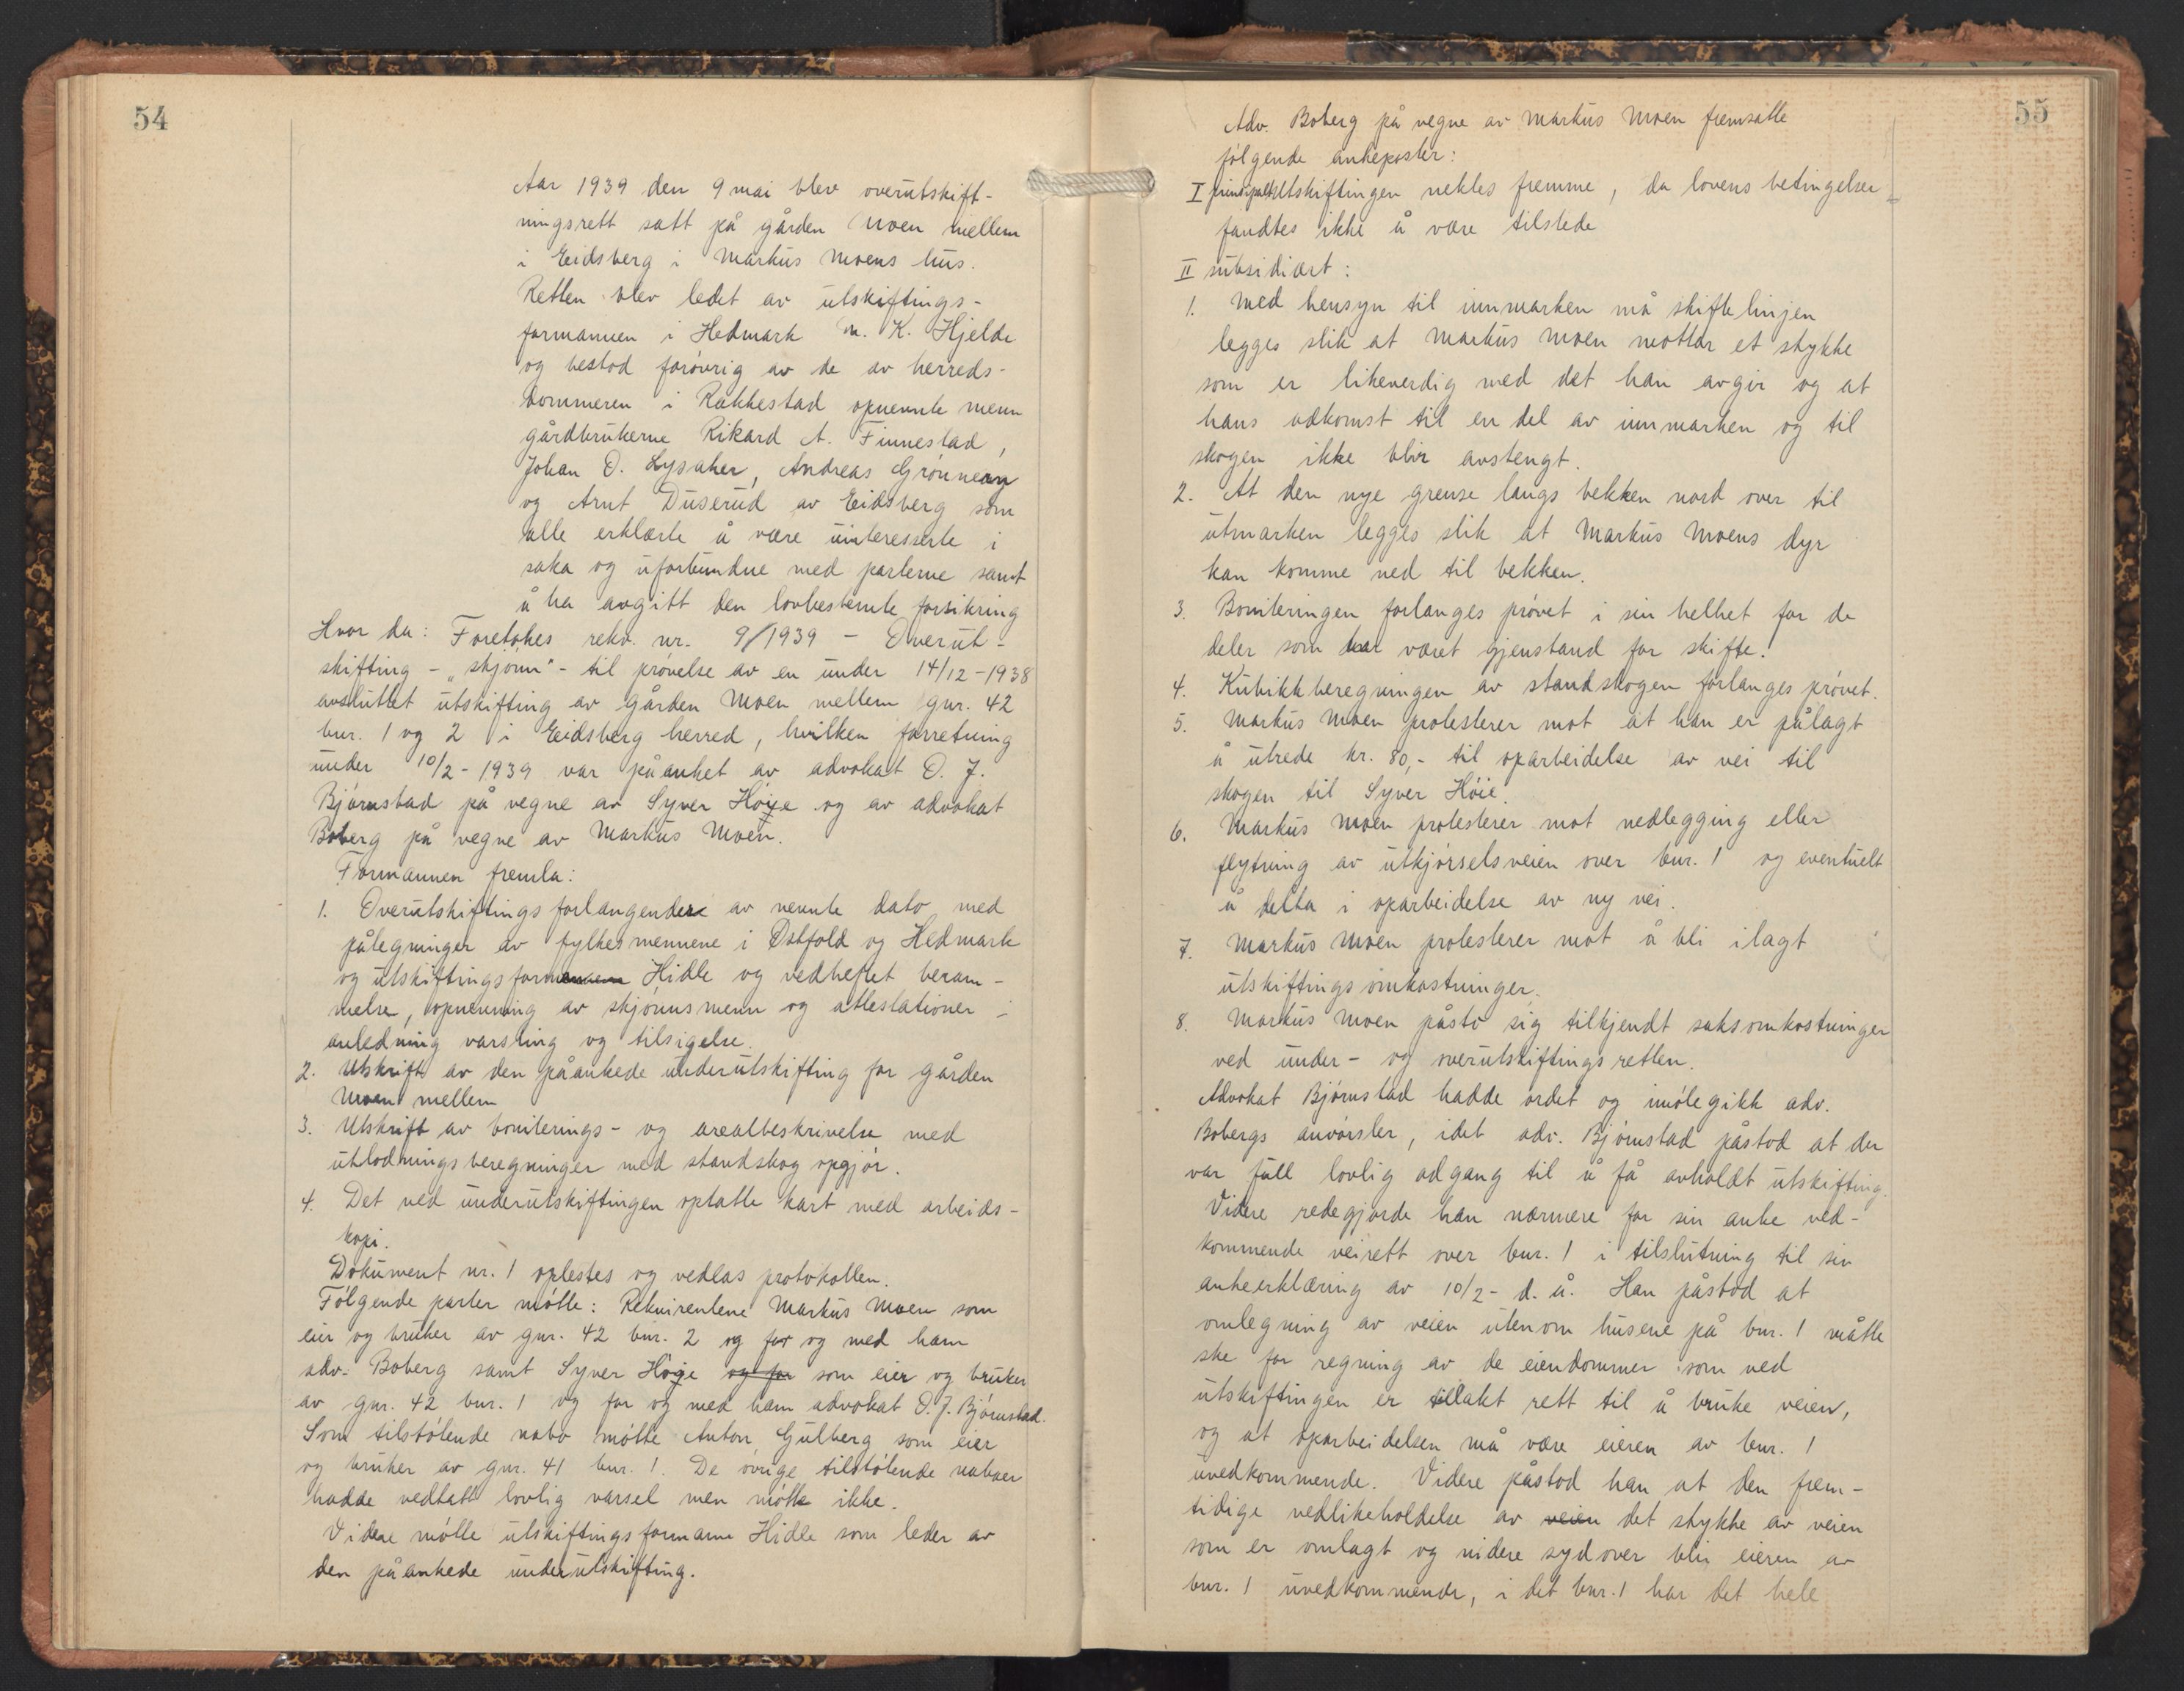 54
Aar 1939 den 9 mai blev overutskift-
ningsrett satt på gården Moen mellem
i Eidsberg i Markus Moens hus.
Retten blev ledet av utskiftings-
formannen i Hedmark M. K. Hjelde
og bestod forøvrig av de av herreds-
dommeren i Rakkestad opnevnte menn
gårdbrukerne Rikard A. Finnestad,
Johan O. Lysaker, Andreas Grønneng
og Arnt Duserud av Eidsberg som
alle erklærte å være uinteresserte i
saka og uforbundne med parterne samt
å ha avgitt den lovbestemte forsikring
Hvor da: Foretokes rekv. nr. 9/1939 - Overut-
skifting - "skjønn" - til prøvelse av en under 14/12-1938
avsluttet utskifting av gården Moen mellem gnr. 42
bnr. 1 og 2 i Eidsberg herred, hvilken forretning
under 10/2-1939 var påanket av advokat O. J.
Bjørnstad på vegne av Syver Høie og av advokat
Boberg på vegne av Markus Moen.
Formannen fremla:
1. Overutskiftingsforlangendene av nevnte dato med
pålegninger av fylkesmennene i Østfold og Hedmark
og utskiftingsformannen Hidle og vedheftet beram-
melse, opnevning av skjønnsmenn og attestationer i
anledning varsling og tilsigelse.
2. Utskrift av den påankede underutskifting for gården
Moen mellem
3. Utskrift av boniterings- og arealbeskrivelse med
utlodningsberegninger med standskog opgjør.
4. Det ved underutskiftingen optatte kart med arbeids-
kopi.
Dokument nr. 1 oplestes og vedlas protokollen.
Følgende parter møtte: Rekvirentene Markus Moen som
eier og bruker av gnr. 42 bnr. 2 og for og med ham
adv. Boberg samt Syver Høie og for som eier og bruker
av gnr. 42 bnr. 1 og for og med ham advokat O. J. Bjørnstad.
Som tilstøtende nabo møtte Anton Gulberg som eier
og bruker av gnr. 41 bnr. 1. De øvrige tilstøtende naboer
hadde vedtatt lovlig varsel men møtte ikke.
Videre møtte utskiftingsformann Hidle som leder av
den påankede underutskifting.
55
Adv. Boberg på vegne av Markus Moen fremsatte
følgende ankeposter:
I prinsipalt Utskiftingen nektes fremme, da lovens betingelser
fandtes ikke å være tilstede
II subsidiært:
1. Med hensyn til innmarken må skiftelinjen
legges slik at Markus Moen mottar et stykke
som er likeverdig med det han avgir og at
hans adkomst til en del av innmarken og til
skogen ikke blir avstengt.
2. At den nye grense langs bekken nord over til
utmarken legges slik at Markus Moens dyr
kan komme ned til bekken.
3. Boniteringen forlanges prøvet i sin helhet for de
deler som har været gjenstand for skifte.
4. Kubikkberegningen av standskogen forlanges prøvet.
5. Markus Moen protesterer mot at han er pålagt
å utrede kr. 80,- til oparbeidelse av vei til
skogen til Syver Høie.
6. Markus Moen protesterer mot nedlegging eller
flytning av utkjørselsveien over bnr. 1 og eventuelt
å delta i oparbeidelse av ny vei.
7. Markus Moen protesterer mot å bli ilagt
utskiftingsomkostninger.
8. Markus Moen påsto sig tilkjendt saksomkostninger
ved under- og overutskiftingsretten.
Advokat Bjørnstad hadde ordet og imøtegikk adv.
Bobergs anførsler, idet adv. Bjørnstad påstod at der
var full lovlig adgang til å få avholdt utskifting.
Videre redegjorde han nærmere for sin anke ved-
kommende veirett over bnr. 1 i tilslutning til sin
ankeerklæring av 10/2- d. å. Han påstod at
omlegning av veien utenom husene på bnr. 1 måtte
ske for regning av de eiendommer som ved
utskiftingen er tillakt rett til å bruke veien,
og at oparbeidelsen må være eieren av bnr. 1
uvedkommende. Videre påstod han at den frem-
tidige vedlikeholdelse av veien det stykke av veien
som er omlagt og videre sydover blir eieren av
bnr. 1 uvedkommende, i det bnr. 1 har det hele